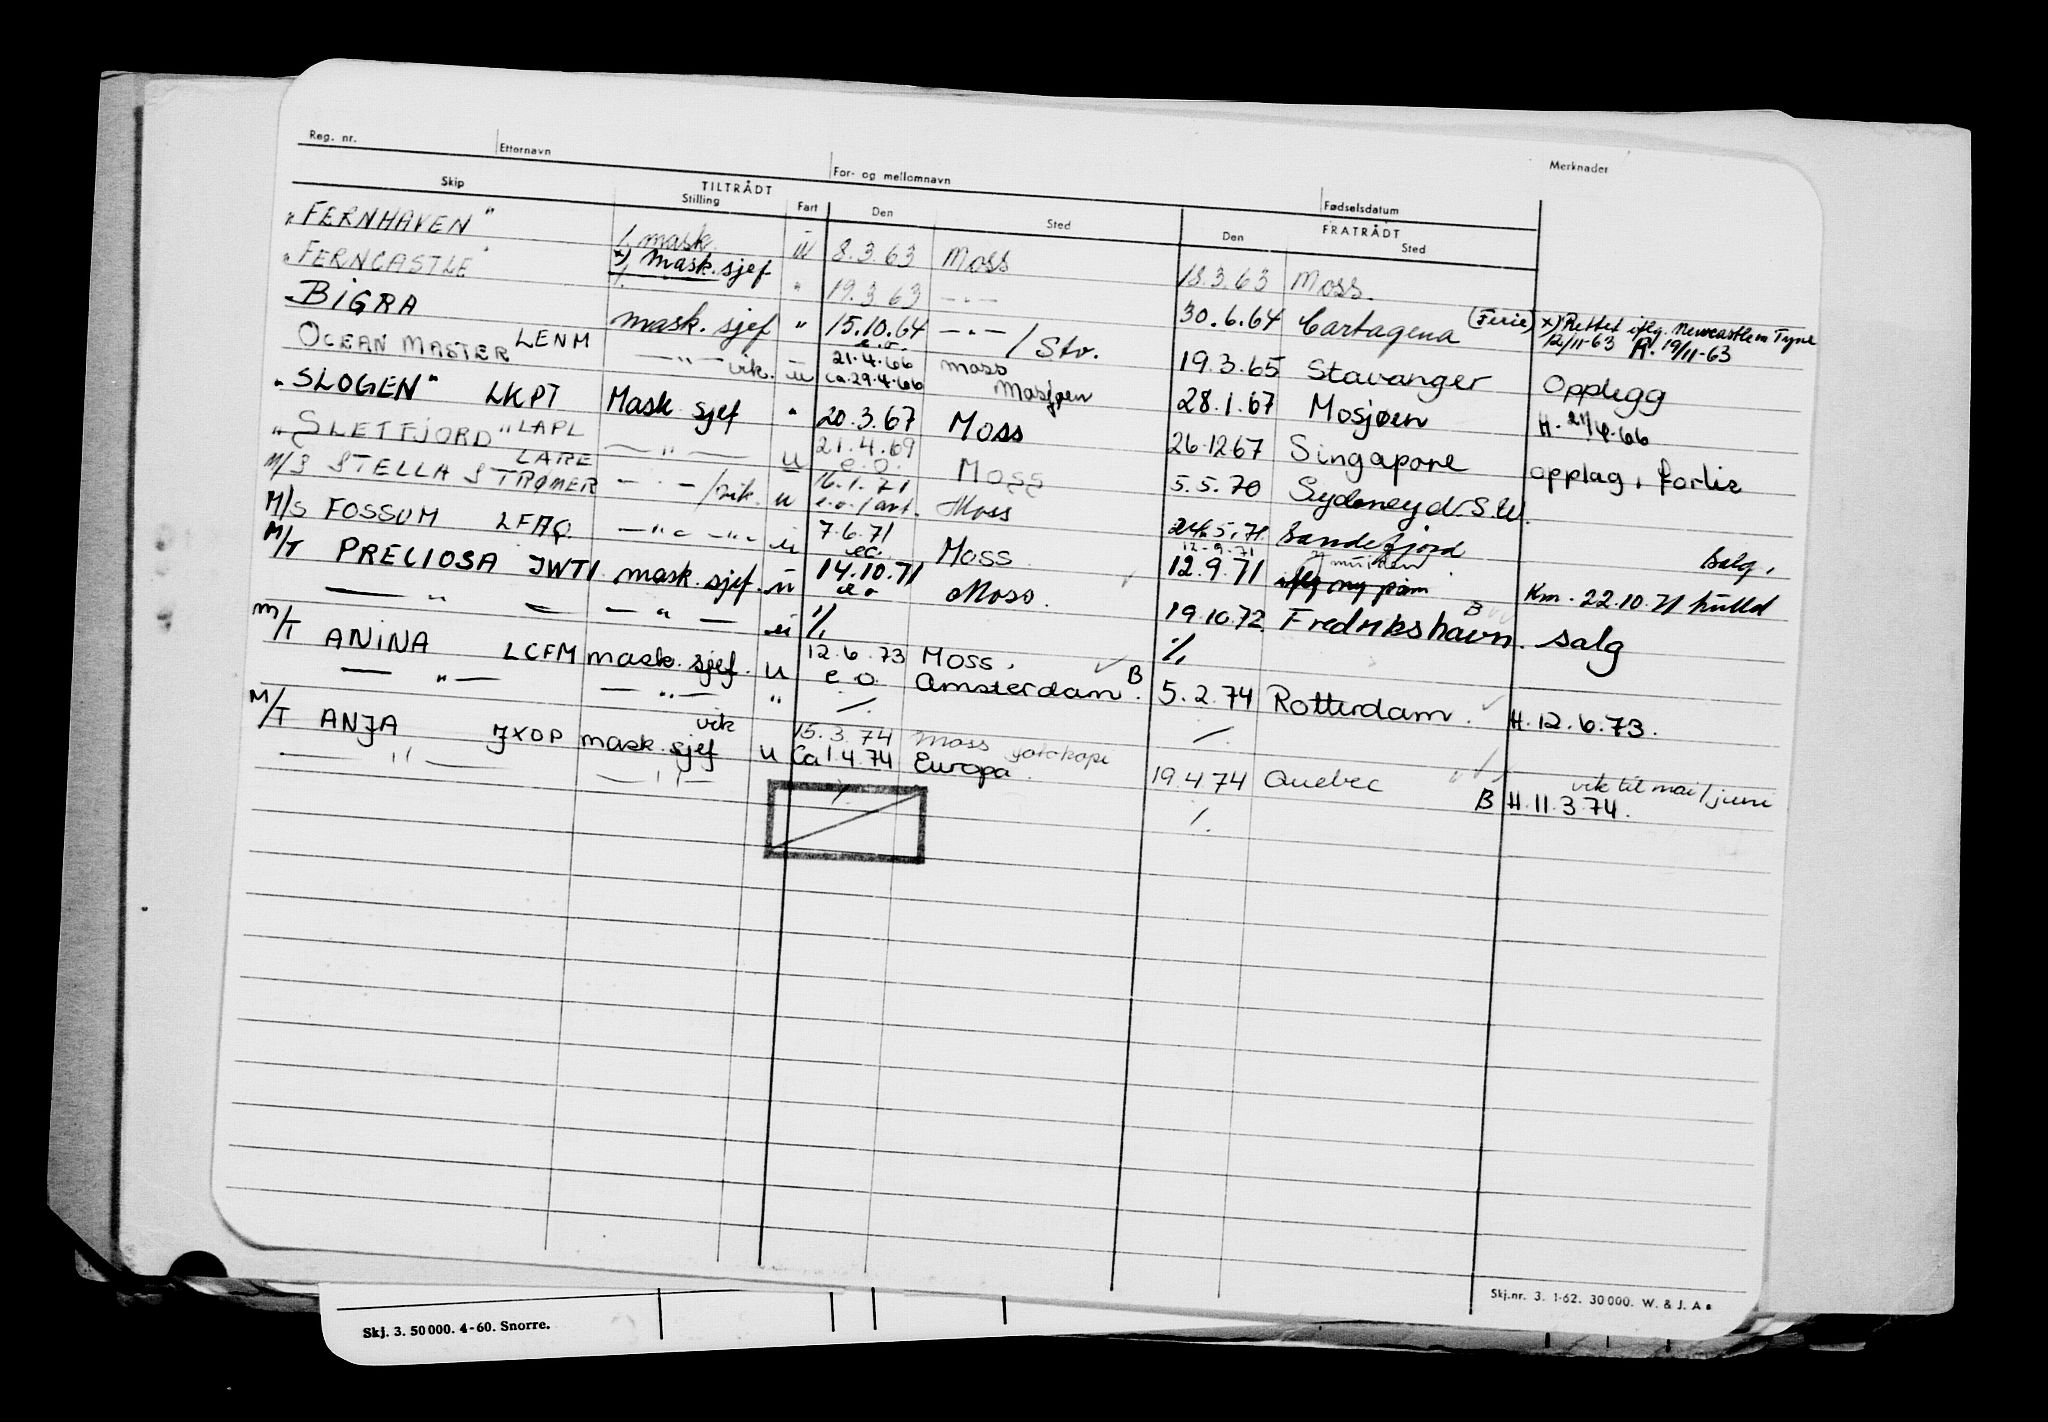 Reg. nr. Etternavn For- og mellomnavn Fødselsdatum Merknader
TILTRÅDT FRATRÅDT
Skip Stilling Fart Den Sted Den Sted
"FERNHAVEN" 1. mask. 8.3.63 Moss 18.3.63 Moss.
"FERNCASTLE" x) Mask. sjef " 19.3.63 —"— 30.6.64 Cartagena (Ferie) x) Rettet iflg. Newcastle on Tyne 12/11-63 R. 19/11-63
BIGRA mask. sjef " 15.10.64 —"— / Stv. 19.3.65 Stavanger Opplegg
e.o.
OCEAN MASTER LENM —"— vik. u 21.4.66 moss 28.1.67 Mosjøen H. 21/4.66
ca. 29.4.66 Mosjøen
"SLOGEN" LKPT Mask sjef " 20.3.67 Moss 26.12.67 Singapore opplag, forlis
"SLETFJORD" LAPL —"— u 21.4.69 e.o. Moss 5.5.70 Sydeney d.S.W.
M/S STELLA STRØMER LARE —"—/vik. u 16.1.71 e.o./avt. Moss 24.5.71 Sandefjord Salg.
M/S FOSSUM LFAQ —"— —"— u 7.6.71 e.o. Moss 12.9.71 12.9.71 Km. 22.10.71 hulld
M/T PRECIOSA JWTI mask. sjef. u 14.10.71 e.o Moss. 19.10.72 Fredrikshavn. B salg
—"— — —"— u % %
M/T ANINA LCFM mask. sjef. u 12.6.73 Moss. 5.2.74 Rotterdam. H. 12.6.73.
e.o. Amsterdam. B
—"— —"— " /. /.
M/T ANJA JXOP mask. sjef vik u 15.3.74 moss fotokopi 19.4.74 Quebec vik til mai/juni
Ca 1.4.74 Europa. B H. 11.3.74.
—"— —"— /. /.
Skj.nr. 3. 1-62. 30 000. W. & J. A.
Skj. 3. 50 000. 4-60. Snorre.